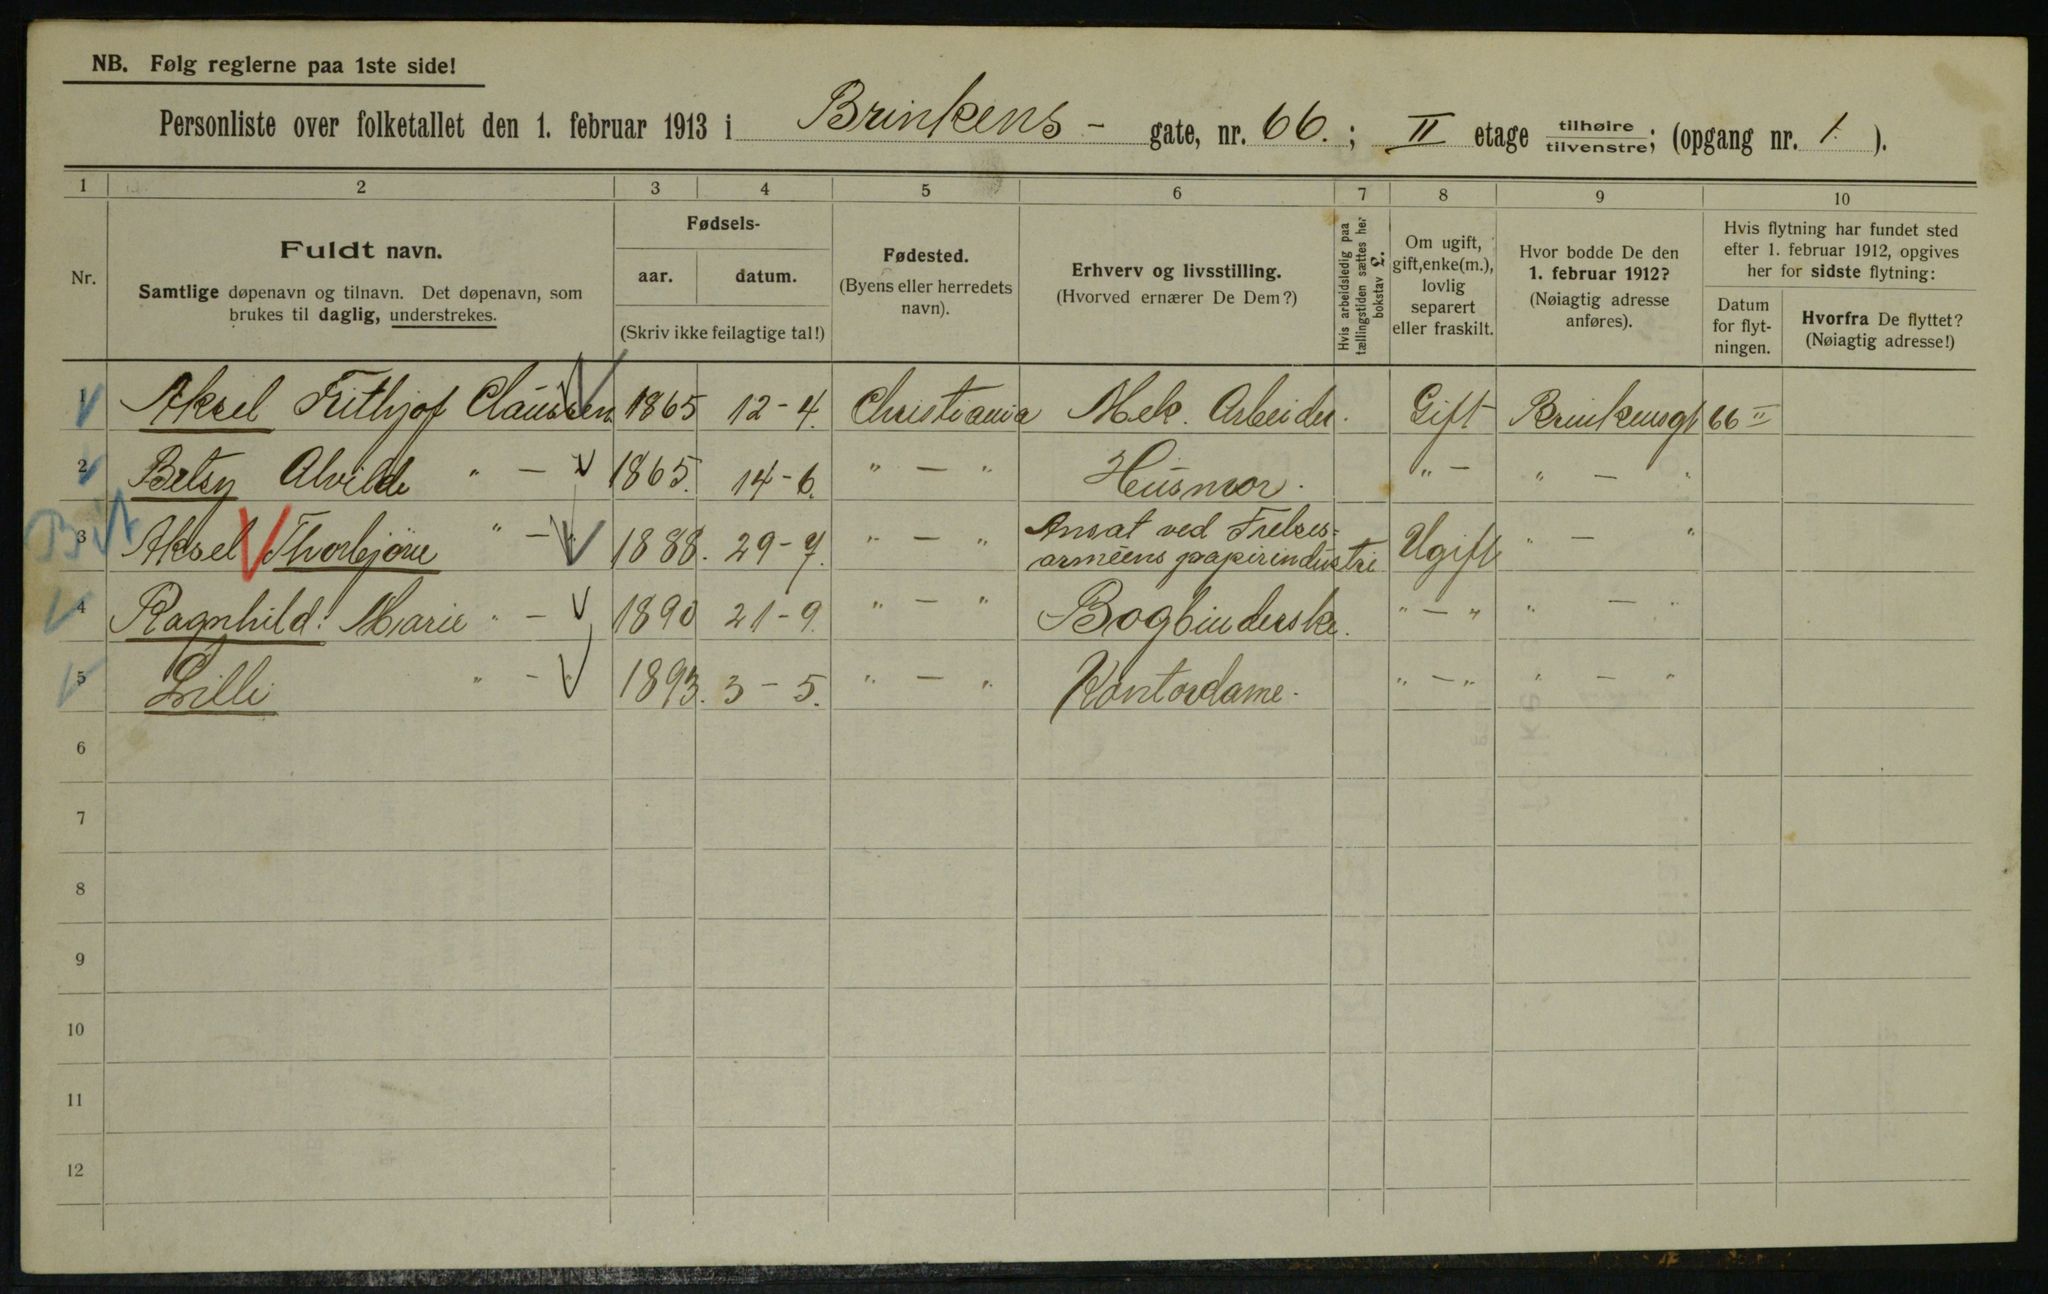 NB. Følg reglerne paa 1ste side!
Personliste over folketallet den 1. februar 1913 i Brinkens - gate, nr. 66. ; II etage tilhøire tilvenstre; (opgang nr. 1. ).
1 2 3 4 5 6 7 8 9 10
Nr.
Fuldt navn.
Samtlige døpenavn og tilnavn. Det døpenavn, som
brukes til daglig, understrekes.
Fødsels-
aar. datum.
(Skriv ikke feilagtige tal!)
Fødested.
(Byens eller herredets
navn).
Erhverv og livsstilling.
(Hvorved ernærer De Dem?)
Hvis arbeidsledig paa
tællingstiden sættes her
bokstav L.
Om ugift,
gift, enke(m.),
lovlig
separert
eller fraskilt.
Hvor bodde De den
1. februar 1912?
(Nøiagtig adresse
anføres).
Hvis flytning har fundet sted
efter 1. februar 1912, opgives
her for sidste flytning:
Datum
for flyt-
ningen.
Hvorfra De flyttet?
(Nøiagtig adresse!)
1 Aksel Frithjof Claussen 1865 12-4. Christiania Mek. Arbeider. Gift Brinkensgt 66 II
2 Betsy Alvilde " — " 1865. 14-6. " — " Husmor. " — " — "
3 Aksel Thorbjørn " — " 1888. 29-7. " — " Ansat ved Frelses=
armeens papirindustri Ugift " — "
4 Ragnhild Marie " — " 1890 21-9. " — " Bogbinderske. " — " " — "
5 Lilli " — " 1893. 3-5. " — " Kontordame. " — " " — "
6
7
8
9
10
11
12